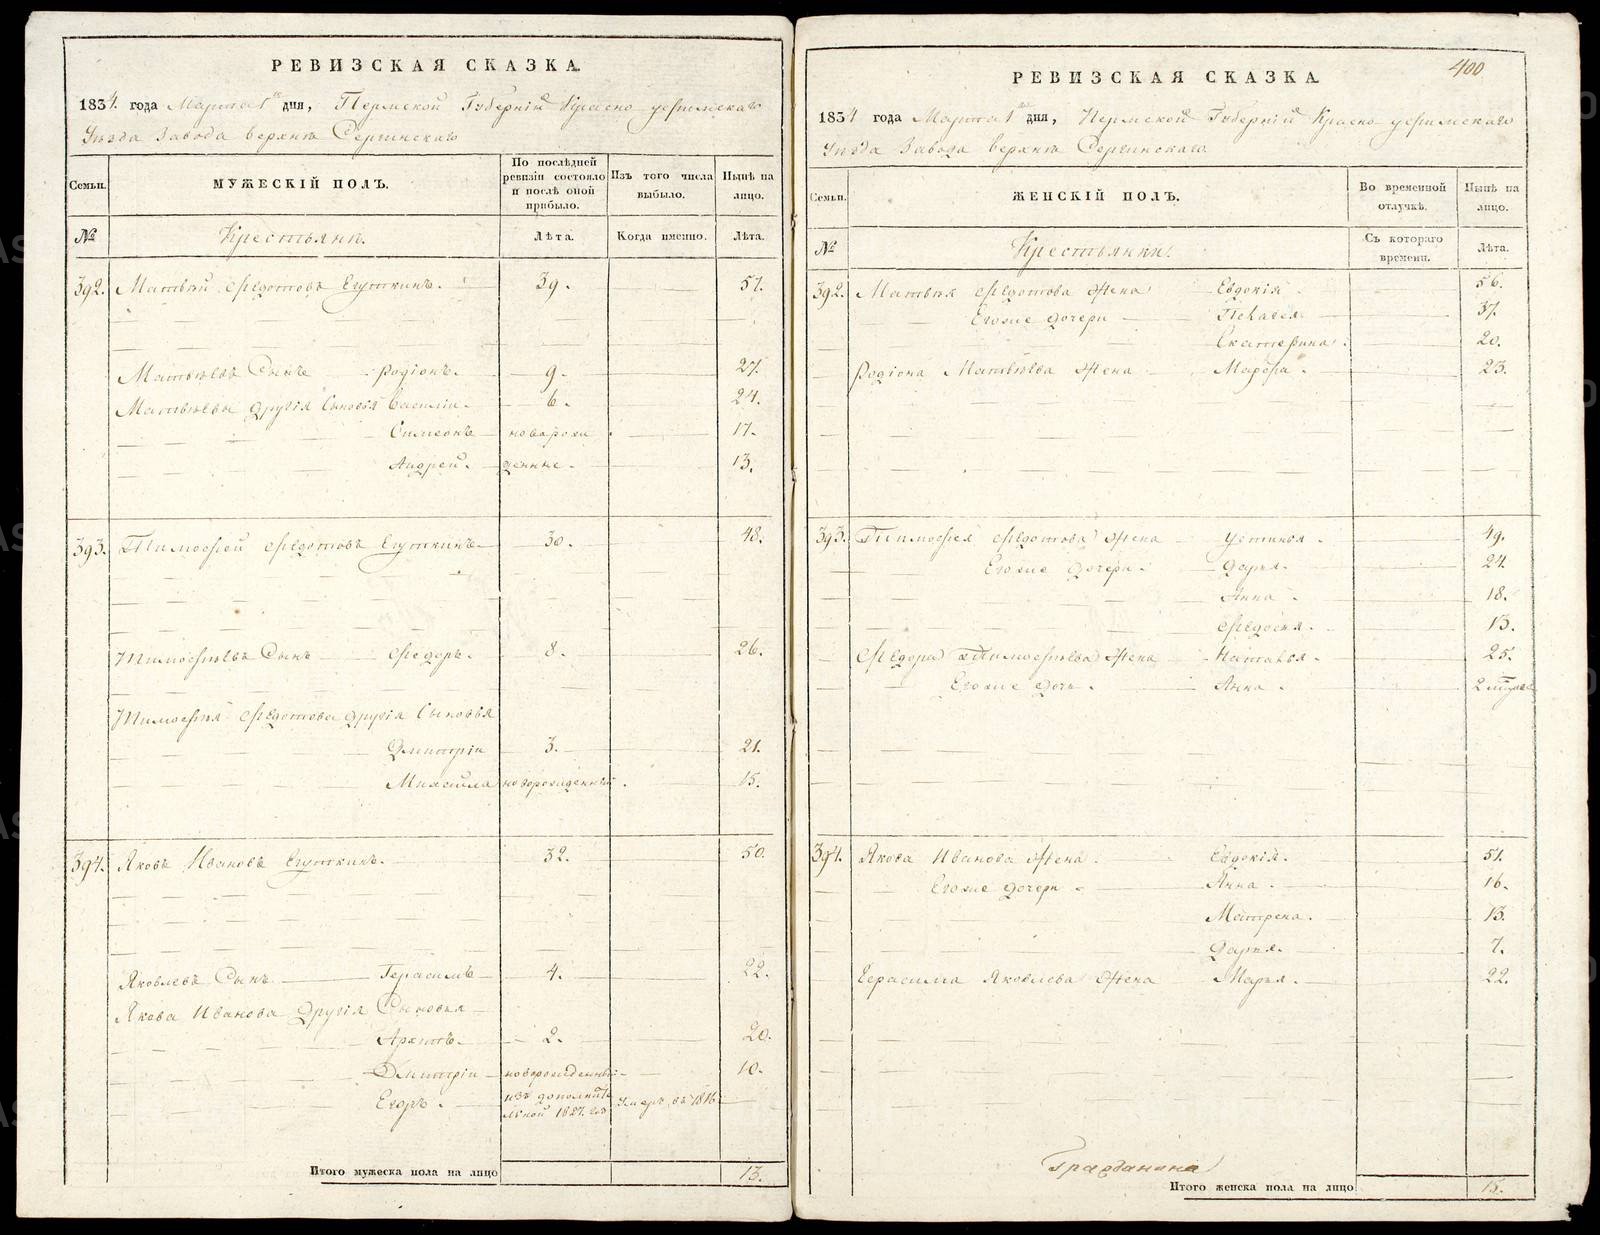 РЕВИЗСКАЯ СКАЗКА.
1834. года Марта 1го дня, Пермской Губерніи Красно уфимскаго
Уѣзда Завода верхнѣ Сергинскаго
Семьи.
МУЖЕСКІЙ ПОЛЪ.
По послѣдней ревизіи состояло и послѣ оной прибыло.
Изъ того числа выбыло.
Нынѣ на лицо.
№
Крестьяне.
Лѣта.
Когда именно.
Лѣта.
392. Матвѣй Ѳедотовъ Егуткинъ. 39. 57.
Матвѣевъ Сынъ Родіонъ. 9. 27.
Матвѣевы другія Сыновья Василіи. 6. 24.
Симеонъ новорож 17.
Андрей. денные. 13.
393. Тимоѳей Ѳедотовъ Егуткинъ 30. 48.
Тимоѳѣевъ Сынъ Ѳедоръ. 8. 26.
Тимоѳея Ѳедотова другія Сыновья
Дмитріи 3. 21.
Михайла новорожденный. 15.
394. Яковъ Ивановъ Егуткинъ. 32. 50.
Яковлевъ Сынъ Герасимъ 4. 22.
Якова Иванова другія Сыновья
Архипъ. 2. 20.
Дмитріи новорожденный 10.
Егоръ. изъ дополните
льной 1827. год Умеръ въ 1816.
Итого мужеска пола на лицо 13.
400
РЕВИЗСКАЯ СКАЗКА.
1834 года Марта 1го дня, Пермской Губерніи Красно уфимскаго
Уѣзда Завода верхнѣ Сергинскаго
Семьи.
ЖЕНСКІЙ ПОЛЪ.
Во временной отлучкѣ.
Нынѣ на лицо.
№
Крестьянки.
Съ котораго времени.
Лѣта.
392. Матвѣя Ѳедотова Жена Евдокія 56.
Егоже дочери Пелагея. 37.
Екатерина. 20.
Родіона Матвѣева Жена Марѳа. 23.
393. Тимоѳея Ѳедотова Жена Устинья. 49.
Егоже дочери. Дарья. 24.
Анна. 18.
Ѳедосья. 13.
Ѳедора Тимоѳѣева Жена Наталья. 25.
Егоже дочь. Анна. 2
394. Якова Иванова Жена. Евдокія. 51.
Егоже дочери. Анна. 16.
Матрена. 13.
Дарья. 7.
Герасима Яковлева Жена Марья. 22.
Гражданина
Итого женска пола на лицо 15.